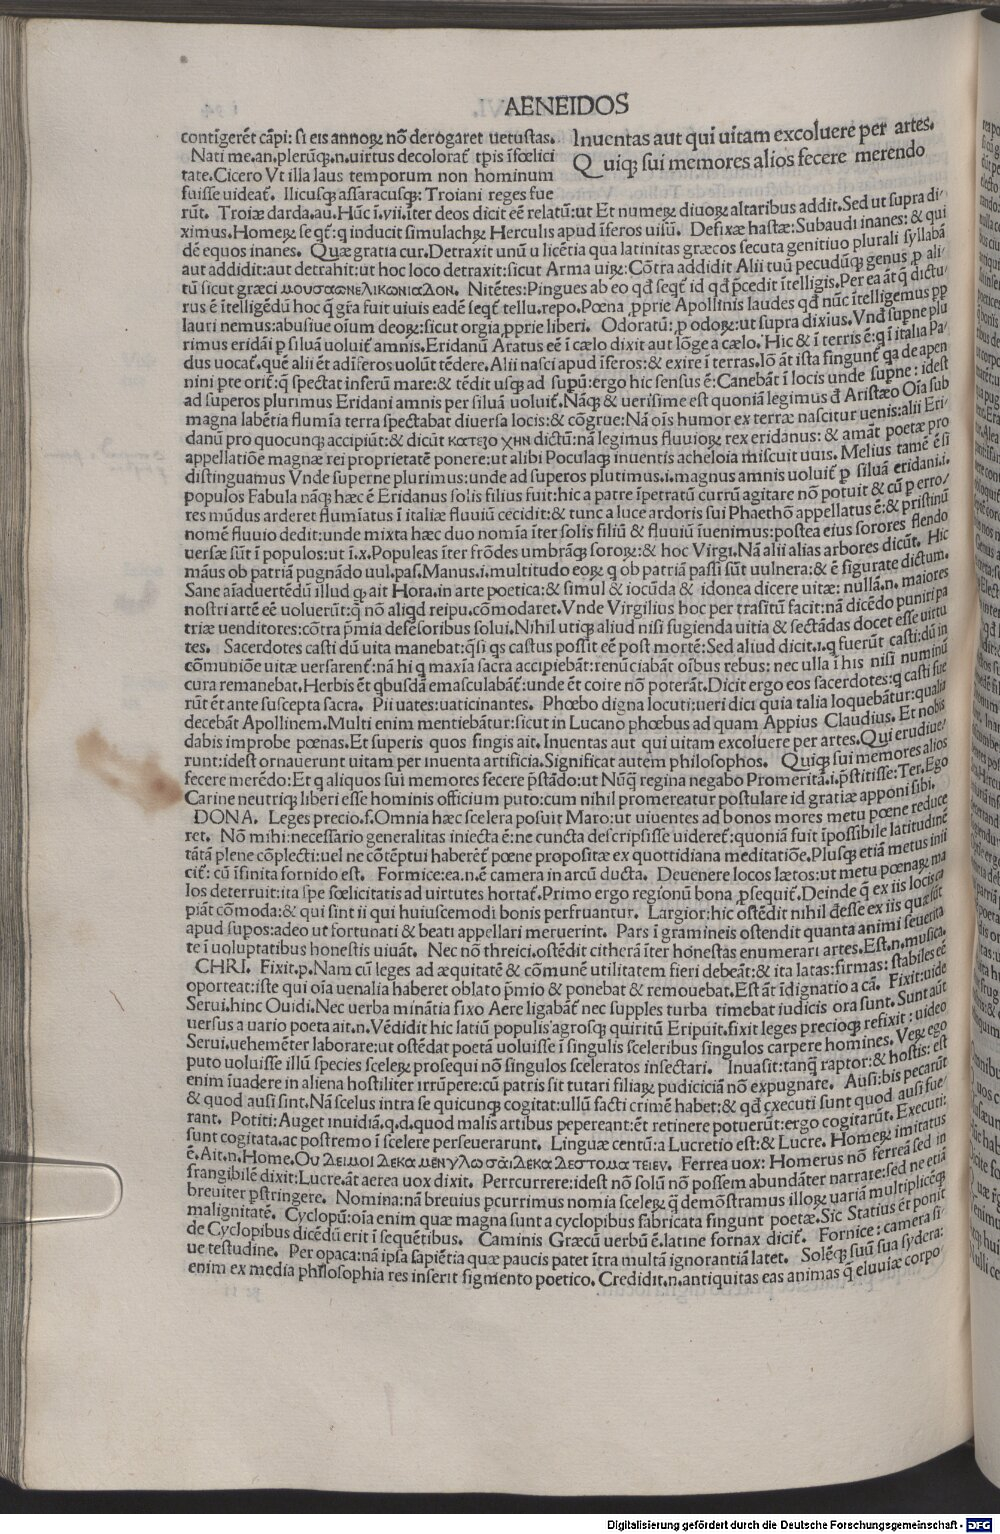 AENEIDOS
contĩgerẽt cãpi: si eis annoꝝ nõ derogaret uetustas.
Nati me.an.plerũqꝫ.n.uirtus decolorat᷑ tp̃is ĩfœlici
tate.Cicero Vt illa laus temporum non hominum
fuisse uideat᷑. Ilicusqꝫ assaracusqꝫ: Troiani reges fue
Inuentas aut qui uitam excoluere per artes.
Quiqꝫ sui memores alios fecere merendo
rũt. Troiæ darda.au.Hũc ĩ.vii.ĩter deos dicit eẽ relatũ:ut Et numeꝝ diuoꝝ altaribus addit.Sed ut supra di/
ximus.Homeꝝ seqt᷑:q inducit simulachꝝ Herculis apud ĩferos uisũ. Defixæ hastæ:Subaudi inanes: & qui
dẽ equos inanes. Quæ gratia cur.Detraxit unũ u licẽtia qua latinitas græcos secuta genitiuo plurali syllabã
aut addidit:aut detrahit:ut hoc loco detraxit:sicut Arma uiꝝ:Cõtra addidit Alii tuũ pecudũqꝫ genus ꝑ ali/
tũ sicut græci ΜΟΥΣΑΩΝΕΛΙΚΩΝΙΑΔΟΝ. Nitẽtes:Pingues ab eo qd̃ seqt᷑ id qd̃ p̃cedit ĩtelligis.Per ea ãt q̃ dictu
rus ẽ ĩtelligẽdũ hoc q̃ gr̃a fuit uiuis eadẽ seqt᷑ tellu.repo.Pœna ꝓprie Apollinis laudes qd̃ nũc ĩtelligemus ꝓp
lauri nemus:abusiue oĩum deoꝝ:sicut orgia ꝓprie liberi. Odoratũ:ꝓ odoꝝ:ut supra dixius.Vnd̃ supne plu
rimus eridãi ꝑ siluã uoluit᷑ amnis.Eridanũ Aratus eẽ ĩ cælo dixit aut lõge a cælo.Hic & ĩ terris ẽ:q ĩ italia Pa/
dus uocat᷑.quẽ alii ẽt ad ĩferos uolũt tẽdere.Alii nasci apud ĩferos:& exire ĩ terras.Iõ ãt ista singunt᷑ qa de apen
nini pte orit᷑:q̃ spectat inferũ mare:& tẽdit usqꝫ ad supũ:ergo hic sensus ẽ:Canebãt ĩ locis unde supne: idest
ad superos plurimus Eridani amnis per siluã uoluit᷑.Nãqꝫ & uerisime est quoniã legimus d̃ Aristæo Oĩa sub
magna labẽtia flumĩa terra spectabat diuersa locis:& cõgrue:Nã oĩs humor ex terræ nascitur uenis:alii Eri/
danũ pro quocunqꝫ accipiũt:& dicũt ΚΟΤΕΞΟΧΗΝ dictũ:nã legimus fluuioꝝ rex eridanus: & amãt poetæ pro
appellatiõe magnæ rei proprietatẽ ponere:ut alibi Poculaqꝫ inuentis acheloia miscuit uuis. Melius tamẽ ẽ si
distinguamus Vnde superne plurimus:unde ad superos plutimus.i.magnus amnis uoluit᷑ ꝑ siluã eridani.i.
populos Fabula nãqꝫ hæc ẽ Eridanus solis filius fuit:hic a patre ĩpetratũ currũ agitare nõ potuit & cũ ꝑ erro/
res mũdus arderet flumĩatus ĩ italiæ fluuiũ cecidit:& tunc a luce ardoris sui Phaethõ appellatus ẽ:& pristinũ
nomẽ fluuio dedit:unde mixta hæc duo nomĩa ĩter solis filiũ & fluuiũ ĩuenimus:postea eius sorores flendo
uersæ sũt ĩ populos:ut ĩ.x.Populeas ĩter frõdes umbrãqꝫ soroꝝ:& hoc Virgi.Nã alii alias arbores dicũt. Hic
mãus ob patriã pugnãdo uul.pas.Manus.i.multitudo eoꝝ q ob patriã passi sũt uulnera:& ẽ sigurate dictum.
Sane aĩaduertẽdũ illud qꝫ ait Hora.in arte poetica:& simul & iocũda & idonea dicere uitæ: nullã.n. maiores
nostri artẽ eẽ uoluerũt:q̃ nõ aliqd reipu.cõmodaret.Vnde Virgilius hoc per trãsitũ facit:nã dicẽdo puniri pa
triæ uenditores:cõtra p̃mia defẽsoribus solui.Nihil utiqꝫ aliud nisi fugienda uitia & sectãdas docet esse uirtu
tes. Sacerdotes casti dũ uita manebat:q̃si qs castus possit eẽ post mortẽ:Sed aliud dicit.i.q fuerũt casti:dũ in
cõmuniõe uitæ uersarent᷑:nã hi q maxĩa sacra accipiebãt:renũciabãt oĩbus rebus: nec ulla ĩ his nisi numinũ
cura remanebat.Herbis ẽt qbusdã emasculabãt᷑:unde ẽt coire nõ poterãt.Dicit ergo eos sacerdotes:q casti fue
rũt ẽt ante suscepta sacra. Pii uates:uaticinantes. Phœbo digna locuti:ueri dici quia talia loquebãtur:qualia
decebãt Apollinem.Multi enim mentiebãtur:sicut in Lucano phœbus ad quam Appius Claudius. Et nobis
dabis improbe pœnas.Et superis quos fingis ait.Inuentas aut qui uitam excoluere per artes.Qui erudiue/
runt:idest ornauerunt uitam per inuenta artificia.Significat autem philosophos. Quiqꝫ sui memores alios
fecere merẽdo:Et q aliquos sui memores fecere p̃stãdo:ut Nũq̃ regina negabo Promeritã.i.p̃stitisse:Ter.Ego
Carine neutriqꝫ liberi esse hominis officium puto:cum nihil promereatur postulare id gratiæ apponi sibi.
DONA. Leges precio.f.Omnia hæc scelera posuit Maro:ut uiuentes ad bonos mores metu pœne reduce
ret. Nõ mihi:necessario generalitas iniecta ẽ:ne cuncta descripsisse uideret᷑:quoniã fuit ĩpossibile latitudinẽ
tãtã plene cõplecti:uel ne cõtẽptui haberẽt᷑ pœne propositæ ex quottidiana meditatiõe.Plusqꝫ etiã metus inii
cit᷑: cũ ĩfinita fornido est. Formice:ea.n.ẽ camera in arcũ ducta. Deuenere locos lætos:ut metu pœnaꝝ ma
los deterruit:ita spe fœlicitatis ad uirtutes hortat᷑.Primo ergo regionũ bona ꝓsequit᷑.Deinde q̃ ex iis locis ca
piãt cõmoda:& qui sint ii qui huiuscemodi bonis perfruantur. Largior:hic ostẽdit nihil deesse ex iis quæ sũt
apud supos:adeo ut fortunati & beati appellari meruerint. Pars ĩ gramineis ostendit quanta animi seuerita
te ĩ uoluptatibus honestis uiuãt. Nec nõ threici.ostẽdit citherã ĩter honestas enumerari artes.Est.n.musica.
CHRI. Fixit.p.Nam cũ leges ad æquitatẽ & cõmunẽ utilitatem fieri debeãt:& ita latas:firmas: stabiles eẽ
oporteat:iste qui oĩa uenalia haberet oblato p̃mio & ponebat & remouebat.Est ãt ĩdignatio a cã. Fixit:uide
Serui.hinc Ouidi.Nec uerba minãtia fixo Aere ligabãt᷑ nec supples turba timebat iudicis ora sunt. Sunt aũt
uersus a uario poeta ait.n.Vẽdidit hic latiũ populis agrosqꝫ quiritũ Eripuit.fixit leges precioqꝫ refixit : uideo
Serui.uehemẽter laborare:ut ostẽdat poetã uoluisse ĩ singulis sceleribus singulos carpere homines. Veꝝ ego
puto uoluisse illũ species sceleꝝ prosequi nõ singulos sceleratos insectari. Inuasit:tanq̃ raptor:& hostis: est
enim ĩuadere in aliena hostiliter irrũpere:cũ patris sit tutari filiaꝝ pudiciciã nõ expugnare. Ausi:bis pecarũt
& quod ausi sint.Nã scelus intra se quicunqꝫ cogitat:ullũ facti crimẽ habet:& qd̃ executi sunt quod ausi fue/
rant. Potiti:Auget inuidiã.q.d.quod malis artibus pepereant:ẽt retinere potuerũt:ergo cogitarũt. Executi:
sunt cogitata.ac postremo ĩ scelere perseuerarunt. Linguæ centũ:a Lucretio est:& Lucre. Homeꝝ imitatus
ẽ.Ait.n.Home.ΟΥ ΔΕΙΜΟΙ ΔΕΚΑ ΜΕΝ ΓΛΩΣΣΑΙ ΔΕΚΑ ΔΕ ΣΤΟΜΑΤ ΕΙΕΝ. Ferrea uox: Homerus nõ ferreã sed in
frangibilẽ dixit:Lucre.ãt aerea uox dixit. Perrcurrere:idest nõ solũ nõ possem abundãter narrare:sed ne etiã
breuiter p̃stringere. Nomina:nã breuius ꝑcurrimus nomĩa sceleꝝ q̃ demõstramus illoꝝ uariã multiplicẽqꝫ
malignitatẽ. Cyclopũ:oĩa enim quæ magna sunt a cyclopibus fabricata fingunt poetæ.Sic Statius ẽt ponit
de Cyclopibus dicẽdũ erit ĩ sequẽtibus. Caminis Græcũ uerbũ ẽ.latine fornax dicit᷑. Fornice: camera si/
ue testudine. Per opaca:nã ipsa sapiẽtia quæ paucis patet ĩtra multã ignorantiã latet. Solẽqꝫ suũ sua sydera:
enim ex media philosophia res inserit figmento poetico. Credidit.n.antiquitas eas animas q̃ eluuiæ corpo/
Digitalisierung gefördert durch die Deutsche Forschungsgemeinschaft - DFG